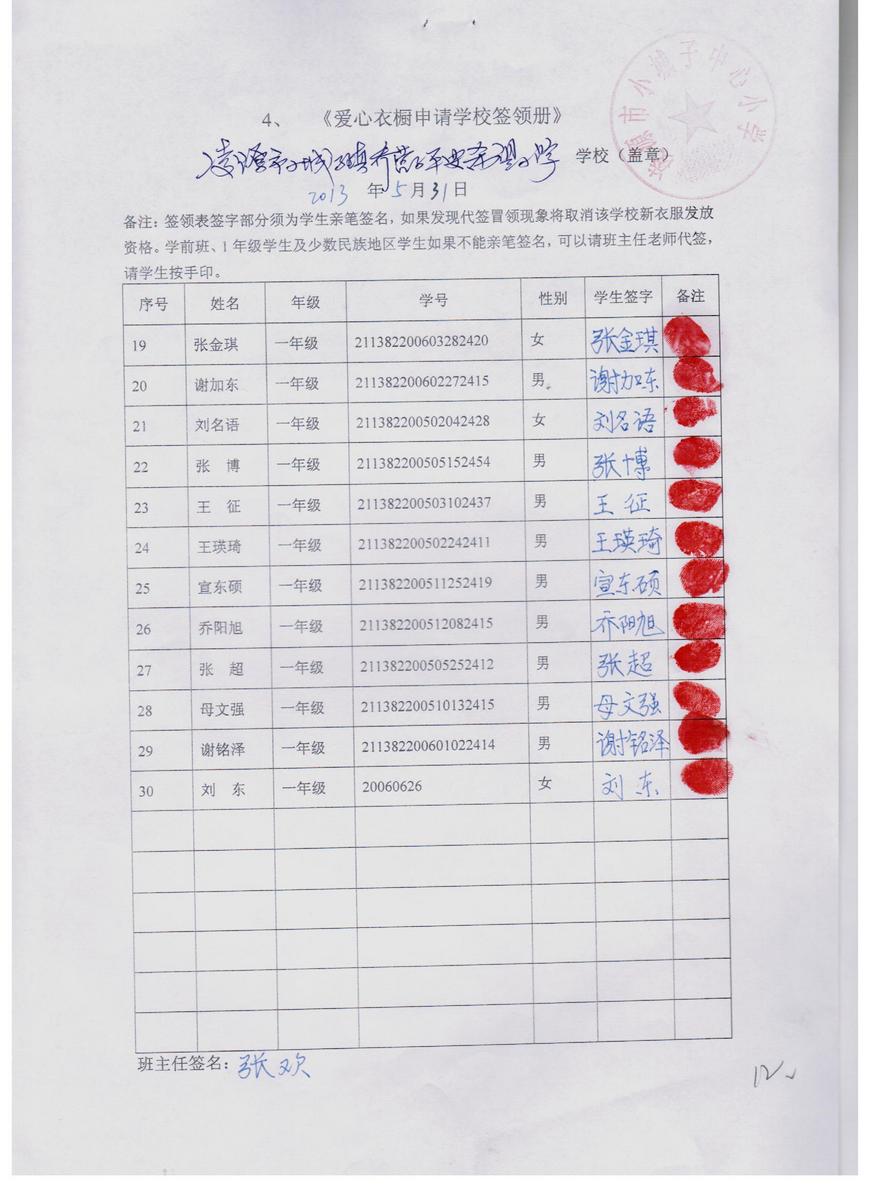 4、 《爱心衣橱申请学校签领册》
学校（盖章）
2013 年 5 月 31 日
备注：签领表签字部分须为学生亲笔签名，如果发现代签冒领现象将取消该学校新衣服发放
资格。学前班、1 年级学生及少数民族地区学生如果不能亲笔签名，可以请班主任老师代签，
请学生按手印。
序号 姓名 年级 学号 性别 学生签字 备注
19 张金琪 一年级 211382200603282420 女 张金琪
20 谢加东 一年级 211382200602272415 男。 谢加东
21 刘名语 一年级 211382200502042428 女 刘名语
22 张 博 一年级 211382200505152454 男 张博
23 王 征 一年级 211382200503102437 男 王 征
24 王瑛琦 一年级 211382200502242411 男 王瑛琦
25 宣东硕 一年级 211382200511252419 男 宣东硕
26 乔阳旭 一年级 211382200512082415 男 乔阳旭
27 张 超 一年级 211382200505252412 男 张超
28 母文强 一年级 211382200510132415 男 母文强
29 谢铭泽 一年级 211382200601022414 男 谢铭泽
30 刘 东 一年级 20060626 女 刘 东
班主任签名：张欢